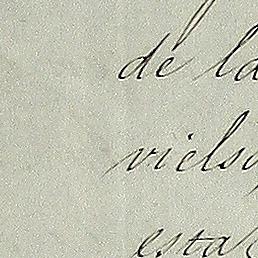 de la
viels
esta